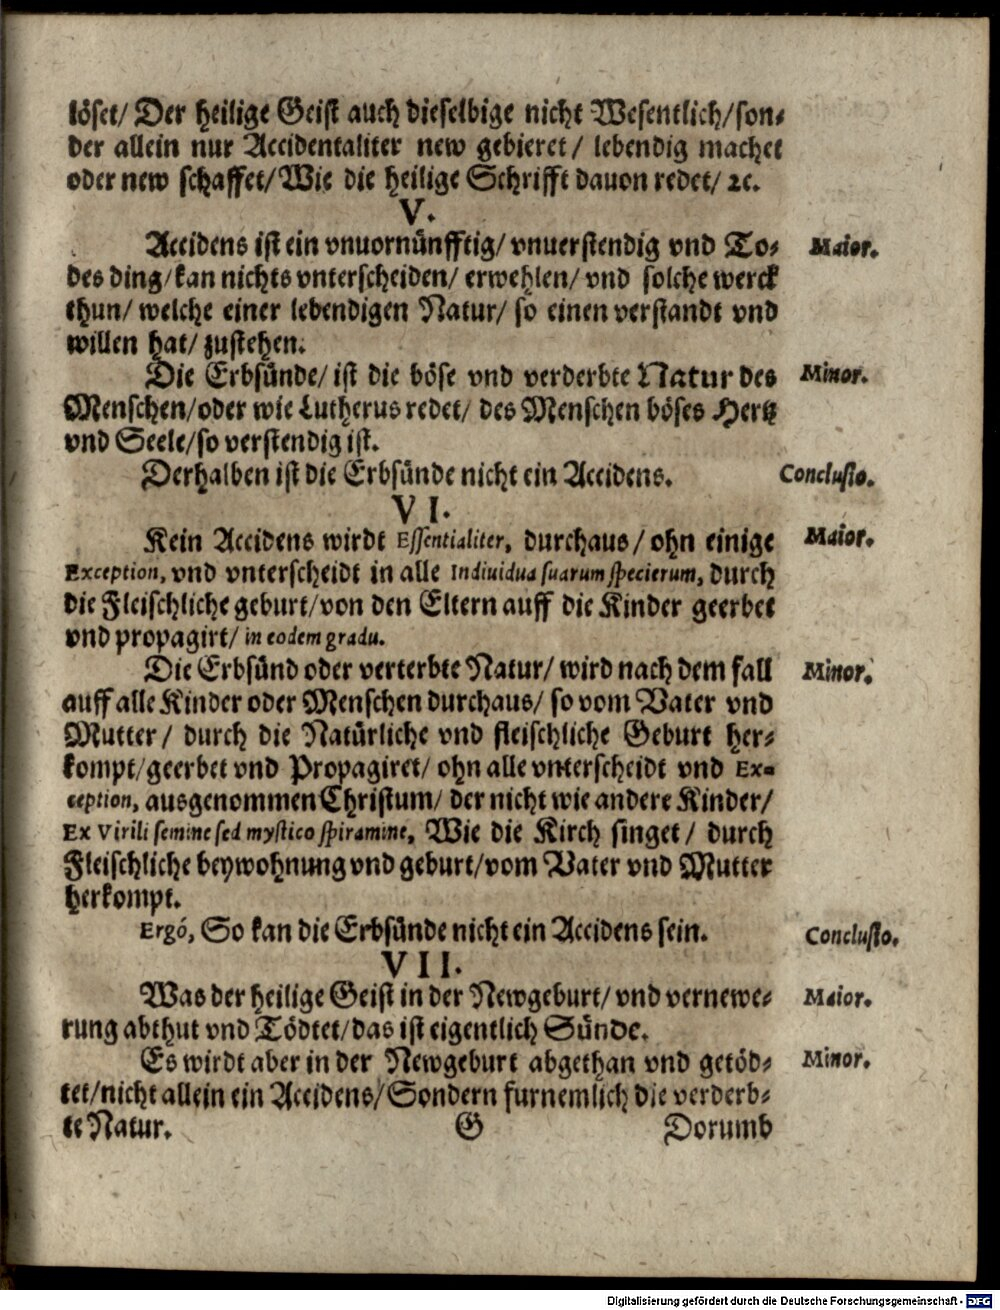 löset/ Der heilige Geist auch dieselbige nicht Wesentlich/ son-
der allein nur Accidentaliter new gebieret/ lebendig machet
oder new schaffet/ Wie die heilige Schrifft dauon redet/ ꝛc.
V.
Accidens ist ein vnuornünfftig/ vnuerstendig vnd To-
Maior.
des ding/ kan nichts vnterscheiden/ erwehlen/ vnd solche werck
thun/ welche einer lebendigen Natur/ so einen verstandt vnd
willen hat/ zustehen.
Die Erbsünde/ ist die böse vnd verderbte Natur des
Minor.
Menschen/ oder wie Lutherus redet/ des Menschen böses Hertz
vnd Seele/ so verstendig ist.
Derhalben ist die Erbsünde nicht ein Accidens.
Conclusio.
VI.
Kein Accidens wirdt Essentialiter, durchaus/ ohn einige
Maior.
Exception, vnd vnterscheidt in alle Indiuidua suarum specierum, durch
die Fleischliche geburt/ von den Eltern auff die Kinder geerbet
vnd propagirt/ in eodem gradu.
Die Erbsünd oder verterbte Natur/ wird nach dem fall
Minor.
auff alle Kinder oder Menschen durchaus/ so vom Vater vnd
Mutter/ durch die Natürliche vnd fleischliche Geburt her-
kompt/ geerbet vnd Propagiret/ ohn alle vnterscheidt vnd Ex-
ception, ausgenommen Christum/ der nicht wie andere Kinder/
Ex Virili semine sed mystico spiramine, Wie die Kirch singet/ durch
Fleischliche beywohnung vnd geburt/ vom Vater vnd Mutter
herkompt.
Ergò, So kan die Erbsünde nicht ein Accidens sein.
Conclusio.
VII.
Was der heilige Geist in der Newgeburt/ vnd vernewe-
Maior.
rung abthut vnd Tödtet/ das ist eigentlich Sünde.
Es wirdt aber in der Newgeburt abgethan vnd getöd-
Minor.
tet/ nicht allein ein Accidens/ Sondern furnemlich die verderb-
te Natur.
G
Dorumb
Digitalisierung gefördert durch die Deutsche Forschungsgemeinschaft - DFG